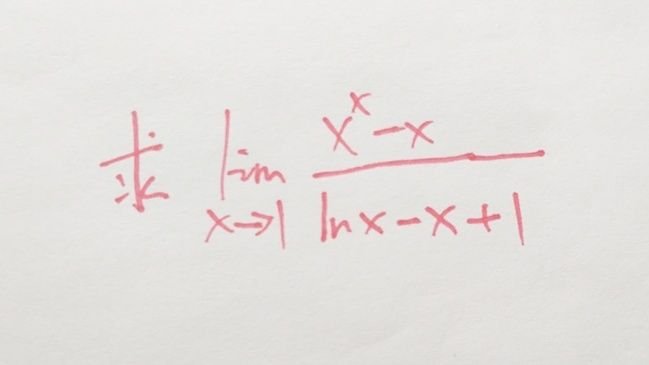 求 lim x→1 (x^x - x) / (ln x - x + 1)